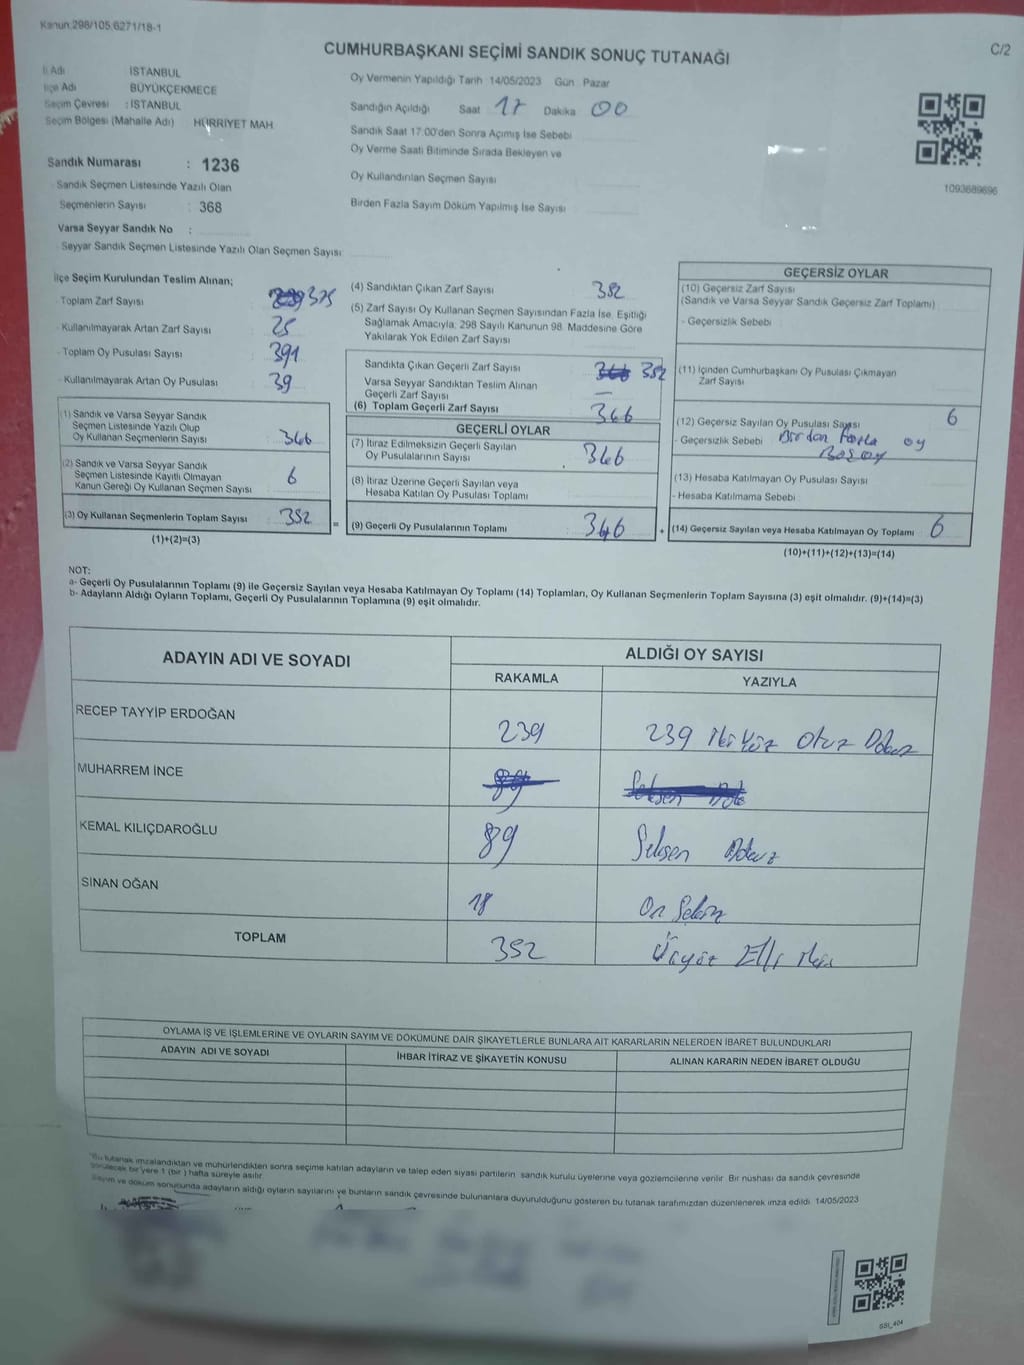 Kanun:298/105:6271/18-1
C/2
CUMHURBAŞKANI SEÇİMİ SANDIK SONUÇ TUTANAĞI
İl Adı İSTANBUL
İlçe Adı BÜYÜKÇEKMECE
Seçim Çevresi : İSTANBUL
Seçim Bölgesi (Mahalle Adı) HÜRRİYET MAH.
Oy Vermenin Yapıldığı Tarih 14/05/2023 Gün Pazar
Sandığın Açıldığı Saat 17 Dakika 00
Sandık Saat 17:00'den Sonra Açımış İse Sebebi
Oy Verme Saati Bitiminde Sırada Bekleyen ve
Oy Kullandırılan Seçmen Sayısı
Birden Fazla Sayım Döküm Yapılmış İse Sayısı
1093689696
Sandık Numarası : 1236
Sandık Seçmen Listesinde Yazılı Olan
Seçmenlerin Sayısı : 368
Varsa Seyyar Sandık No :
Seyyar Sandık Seçmen Listesinde Yazılı Olan Seçmen Sayısı:
İlçe Seçim Kurulundan Teslim Alınan;
Toplam Zarf Sayısı 375
Kullanılmayarak Artan Zarf Sayısı 25
Toplam Oy Pusulası Sayısı 391
Kullanılmayarak Artan Oy Pusulası 39
(1) Sandık ve Varsa Seyyar Sandık
Seçmen Listesinde Yazılı Olup
Oy Kullanan Seçmenlerin Sayısı 346
(2) Sandık ve Varsa Seyyar Sandık
Seçmen Listesinde Kayıtlı Olmayan
Kanun Gereği Oy Kullanan Seçmen Sayısı 6
(3) Oy Kullanan Seçmenlerin Toplam Sayısı 352
(1)+(2)=(3)
=
(4) Sandıktan Çıkan Zarf Sayısı 352
(5) Zarf Sayısı Oy Kullanan Seçmen Sayısından Fazla İse, Eşitliği
Sağlamak Amacıyla, 298 Sayılı Kanunun 98. Maddesine Göre
Yakılarak Yok Edilen Zarf Sayısı
Sandıkta Çıkan Geçerli Zarf Sayısı 352
Varsa Seyyar Sandıktan Teslim Alınan
Geçerli Zarf Sayısı —
(6) Toplam Geçerli Zarf Sayısı 346
GEÇERLİ OYLAR
(7) İtiraz Edilmeksizin Geçerli Sayılan
Oy Pusulalarının Sayısı 346
(8) İtiraz Üzerine Geçerli Sayılan veya
Hesaba Katılan Oy Pusulası Toplamı
(9) Geçerli Oy Pusulalarının Toplamı 346
+
GEÇERSİZ OYLAR
(10) Geçersiz Zarf Sayısı
(Sandık ve Varsa Seyyar Sandık Geçersiz Zarf Toplamı)
- Geçersizlik Sebebi :
(11) İçinden Cumhurbaşkanı Oy Pusulası Çıkmayan
Zarf Sayısı
(12) Geçersiz Sayılan Oy Pusulası Sayısı 6
- Geçersizlik Sebebi Birden Fazla oy
Boş oy
(13) Hesaba Katılmayan Oy Pusulası Sayısı
- Hesaba Katılmama Sebebi
(14) Geçersiz Sayılan veya Hesaba Katılmayan Oy Toplamı 6
(10)+(11)+(12)+(13)=(14)
NOT:
a- Geçerli Oy Pusulalarının Toplamı (9) ile Geçersiz Sayılan veya Hesaba Katılmayan Oy Toplamı (14) Toplamları, Oy Kullanan Seçmenlerin Toplam Sayısına (3) eşit olmalıdır. (9)+(14)=(3)
b- Adayların Aldığı Oyların Toplamı, Geçerli Oy Pusulalarının Toplamına (9) eşit olmalıdır.
ADAYIN ADI VE SOYADI ALDIĞI OY SAYISI
RAKAMLA YAZIYLA
RECEP TAYYİP ERDOĞAN 239 239 İki Yüz Otuz Dokuz
MUHARREM İNCE
KEMAL KILIÇDAROĞLU 89 Seksen Dokuz
SİNAN OĞAN 18 On Sekiz
TOPLAM 352 Üçyüz Elli İki
OYLAMA İŞ VE İŞLEMLERİNE VE OYLARIN SAYIM VE DÖKÜMÜNE DAİR ŞİKAYETLERLE BUNLARA AİT KARARLARIN NELERDEN İBARET BULUNDUKLARI
ADAYIN ADI VE SOYADI İHBAR İTİRAZ VE ŞİKAYETİN KONUSU ALINAN KARARIN NEDEN İBARET OLDUĞU
*Bu tutanak imzalandıktan ve mühürlendikten sonra seçime katılan adayların ve talep eden siyasi partilerin sandık kurulu üyelerine veya gözlemcilerine verilir. Bir nüshası da sandık çevresinde
görülecek bir yere 1 (bir) hafta süreyle asılır.
Sayım ve döküm sonucunda adayların aldığı oyların sayılarını ve bunların sandık çevresinde bulunanlara duyurulduğunu gösteren bu tutanak tarafımızdan düzenlenerek imza edildi. 14/05/2023
SSI_404